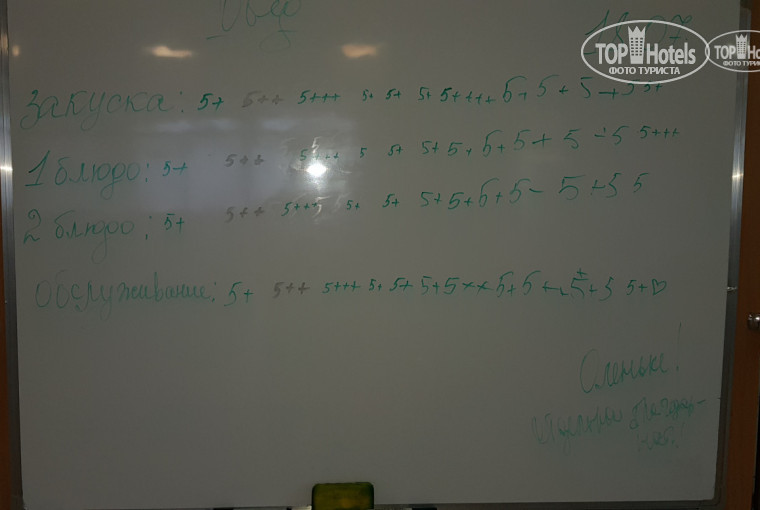 Обед
18.07
TOP Hotels
ФОТО ТУРИСТА
TOP
ФОТО ТУРИ
Закуска: 5+ 5++ 5+++ 5+ 5+ 5+ 5++++ 5+ 5+ 5+5 5+
1 блюдо: 5+ 5++ 5+++ 5 5+ 5+ 5+ 5+ 5+ 5+5 5+++
2 блюдо: 5+ 5++ 5+++ 5+ 5+ 5+ 5+ 5+ 5- 5+5 5
Обслуживание: 5+ 5++ 5+++ 5+ 5+ 5+ 5++ 5+ 5+ 5+ 5 5+♡
Оленьке!